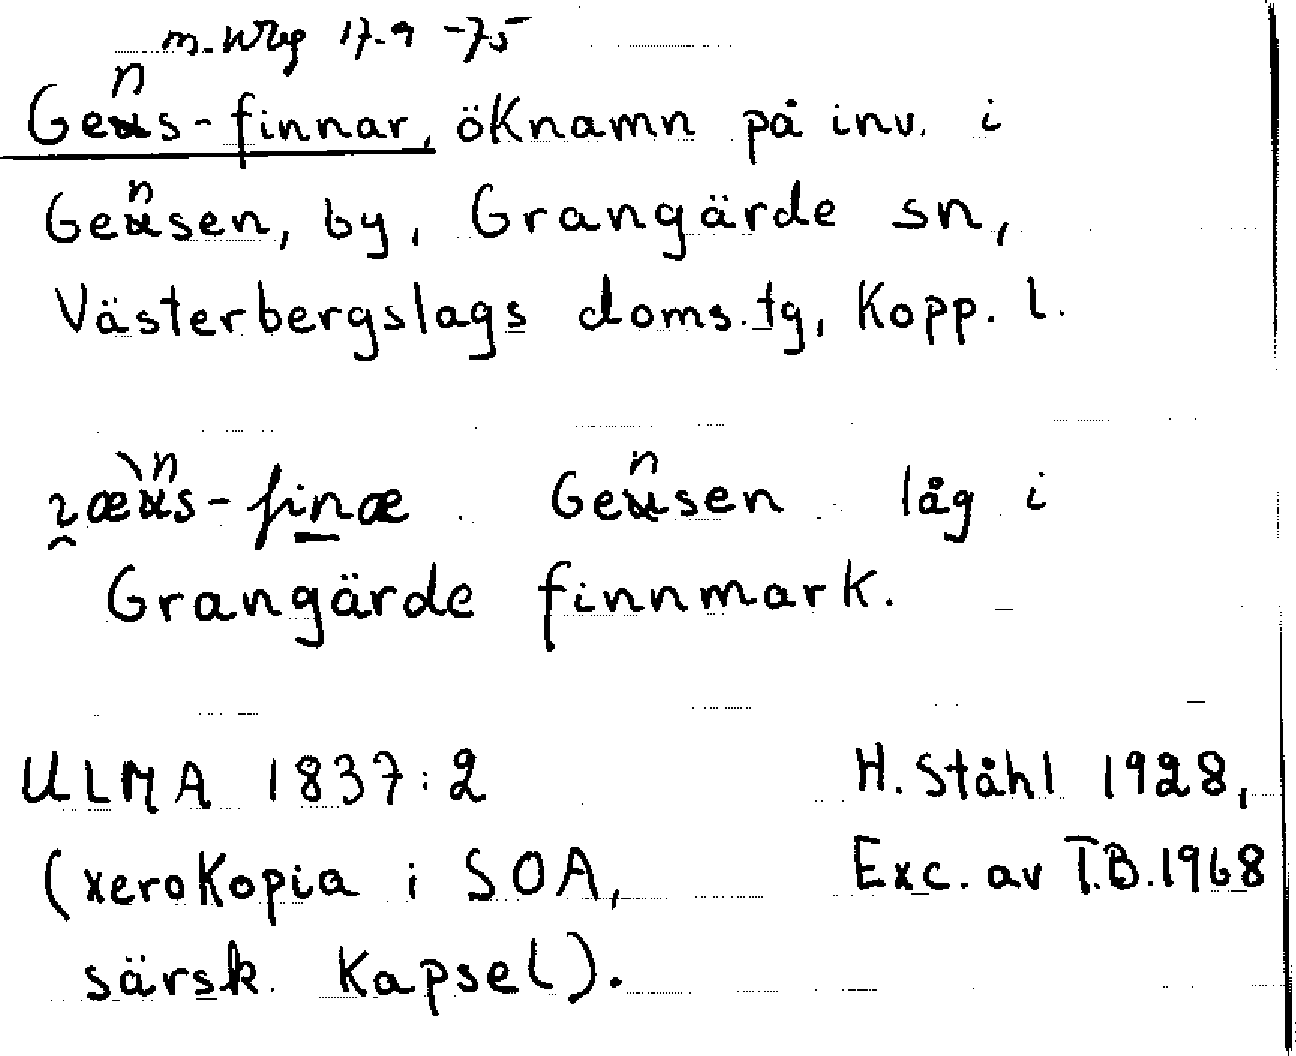 m. Wbg 17.9 -75
Gens-finnar, öknamn på inv. i
Gensen, by, Grangärde sn,
Västerbergslags doms. tg, Kopp. l.
Gensen låg i
Grangärde finnmark.
ULMA 1837:2 H. Ståhl 1928,
(xerokopia i SOA, Exc. av T.B. 1968
särsk. kapsel).